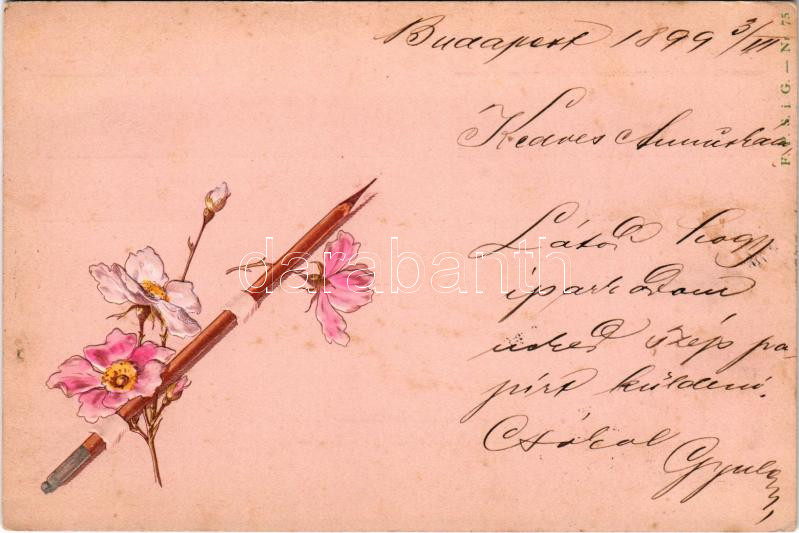 Budapest 1899 3/III
Kedves Annuskám
Látod hogy
iparkodom
neked szép pa-
pírt küldeni.
Csókol
Gyula
F. P. S. i. G. — Nr. 75
darabanth.com